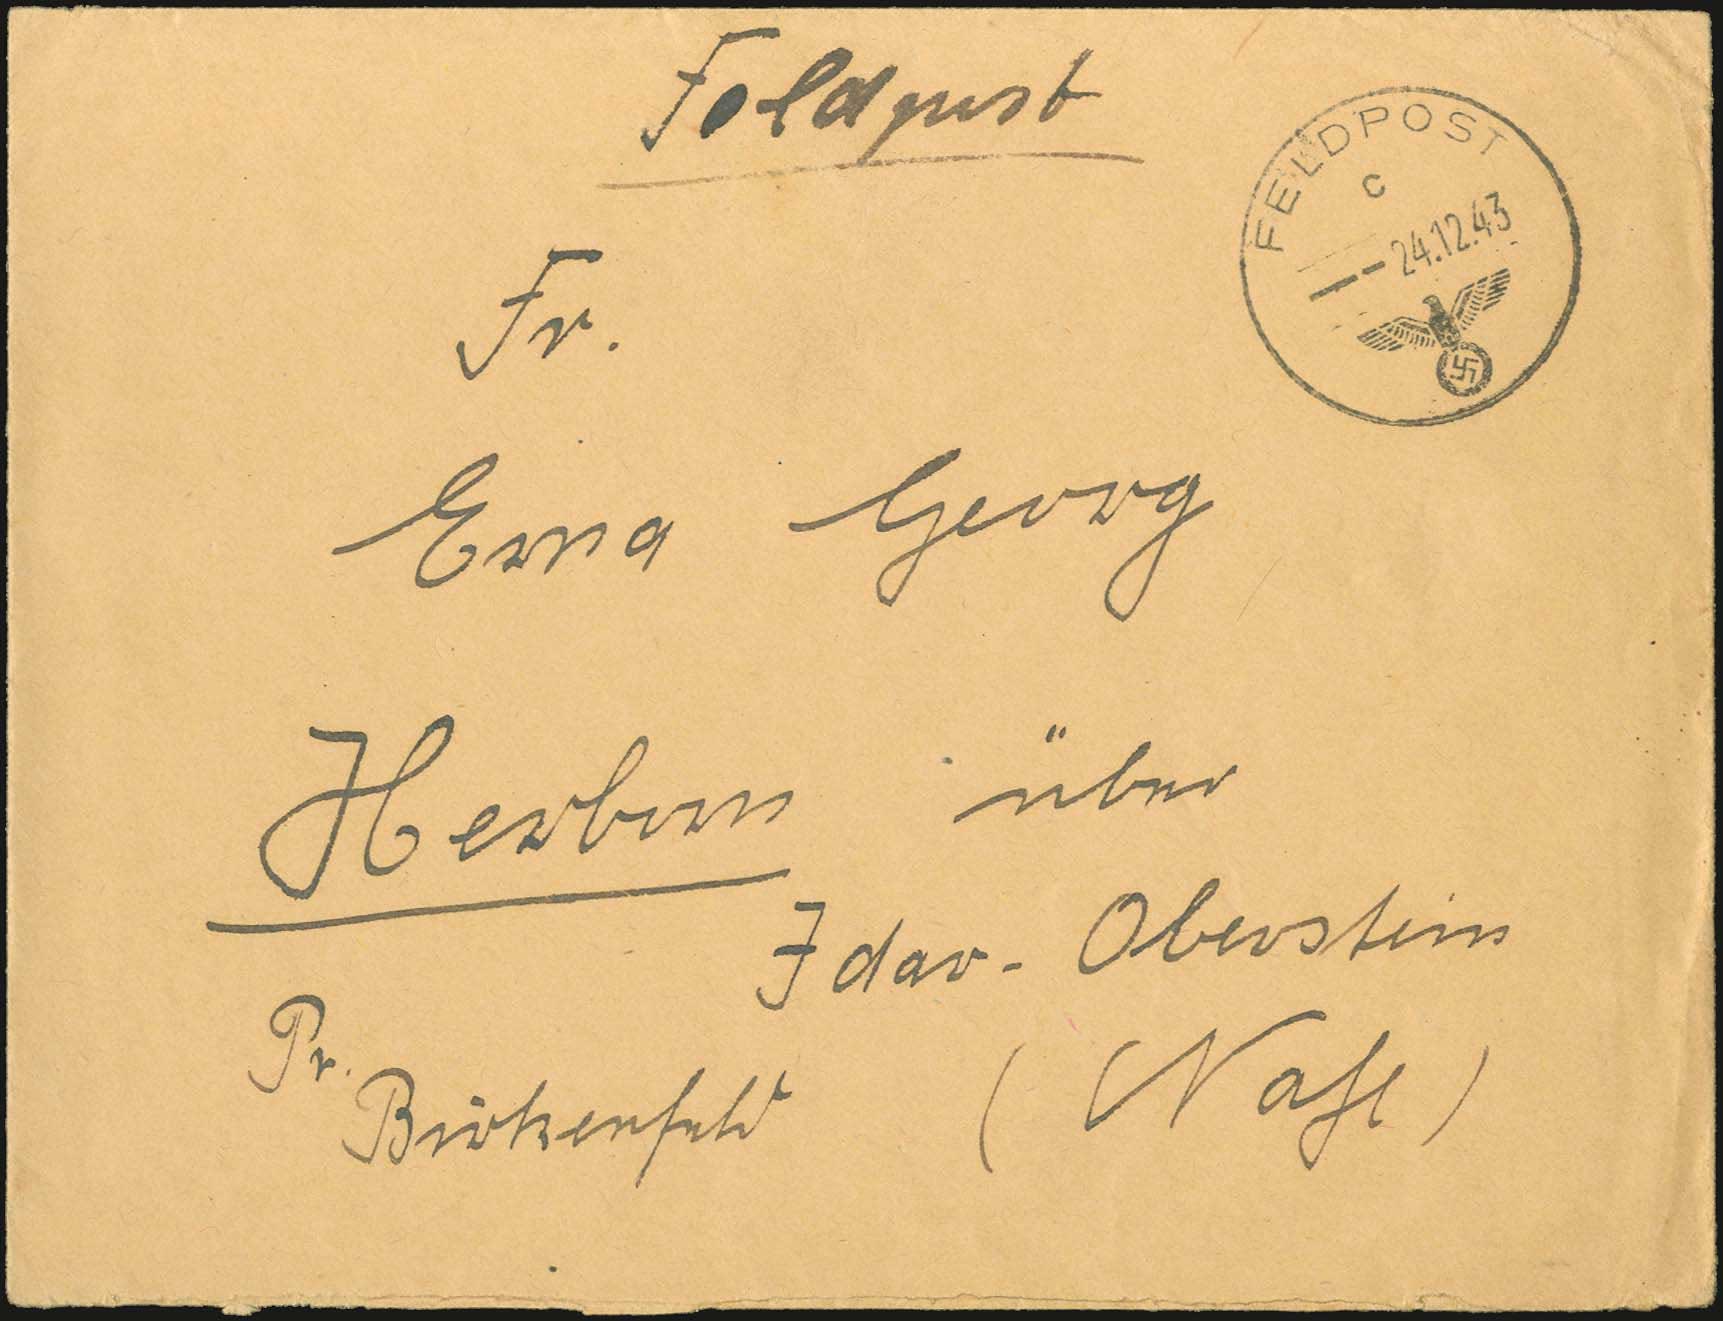 Feldpost
FELDPOST
c
24.12.43
Fr.
Erna Georg
Herborn über
Idar-Oberstein
Pr.
Birkenfeld (Nahe)